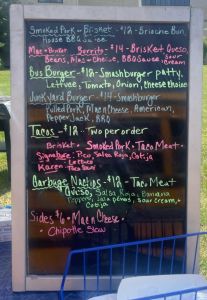 Smoked Pork or Brisket - $12 - Brioche Bun,
House BBQ Sauce
Mac + Brisket Burrito - $14 - Brisket, Queso,
Beans, Mac + Cheese, BBQ Sauce, Sour
Cream
Bus Burger - $12 - Smashburger patty,
Lettuce, Tomato, Onion, Cheese choice
Junkyard Burger - $14 - Smashburger
Pulled Pork, Mac n Cheese, American,
Pepper Jack, BBQ
Tacos - $12 - Two per order
Brisket - Smoked Pork - Taco Meat
Signature: Pico, Salsa Roja, Cotija
Karen: Lettuce
Garbage Nachos $12 - Taco Meat
Queso, Salsa Roja, Banana
Peppers, Jalapeños, Sour Cream,
Cotija
Sides $6 - Mac n Cheese
- Chipotle Slaw